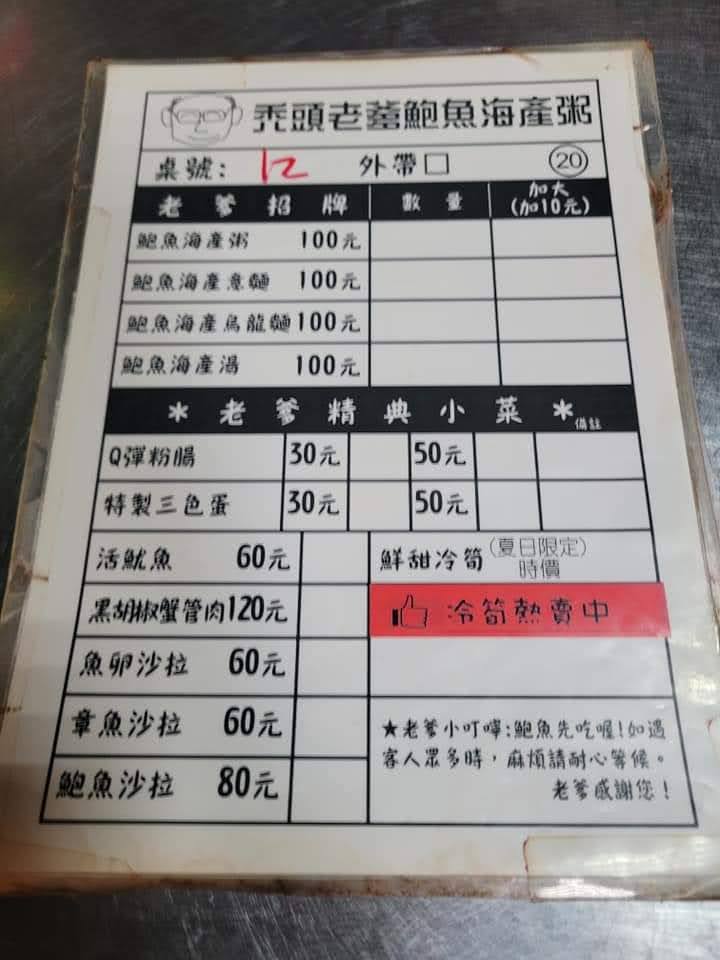 禿頭老爹鮑魚海產粥
桌號: 12 外帶□ 20
老爹招牌 數量 加大(加10元)
鮑魚海產粥 100元
鮑魚海產意麵 100元
鮑魚海產烏龍麵 100元
鮑魚海產湯 100元
*老爹精典小菜* 備註
Q彈粉腸 30元 50元
特製三色蛋 30元 50元
活魷魚 60元 鮮甜冷筍(夏日限定)時價
黑胡椒蟹管肉120元 冷筍熱賣中
魚卵沙拉 60元
章魚沙拉 60元
鮑魚沙拉 80元
★老爹小叮嚀:鮑魚先吃喔!如遇
客人眾多時,麻煩請耐心等候。
老爹感謝您!